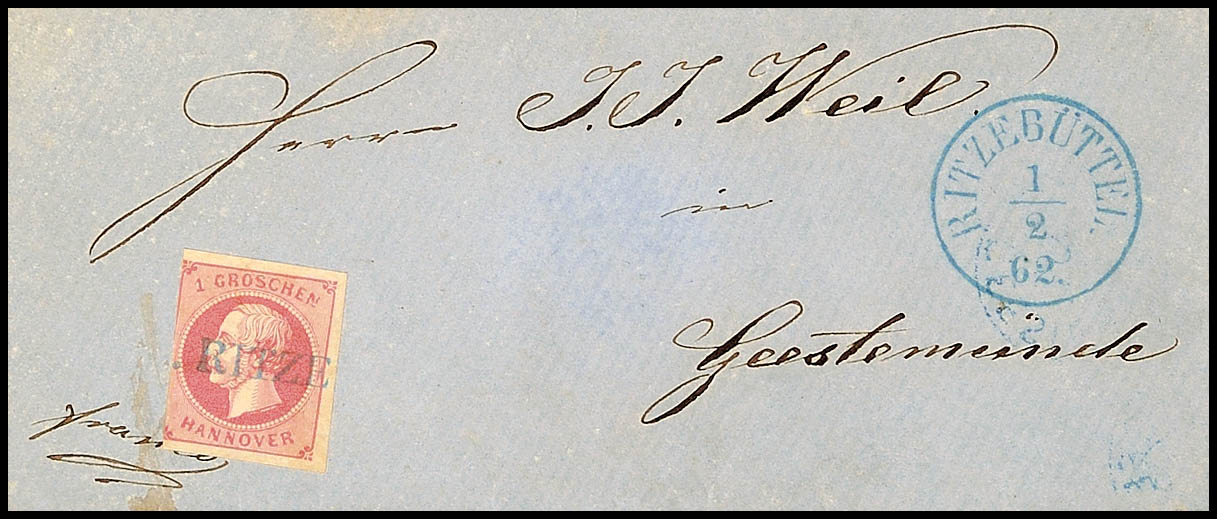 Herrn J. J. Weil.
in
Geestemünde
franco
1 GROSCHEN
HANNOVER
RITZE
RITZEBÜTTEL
1
2
62.